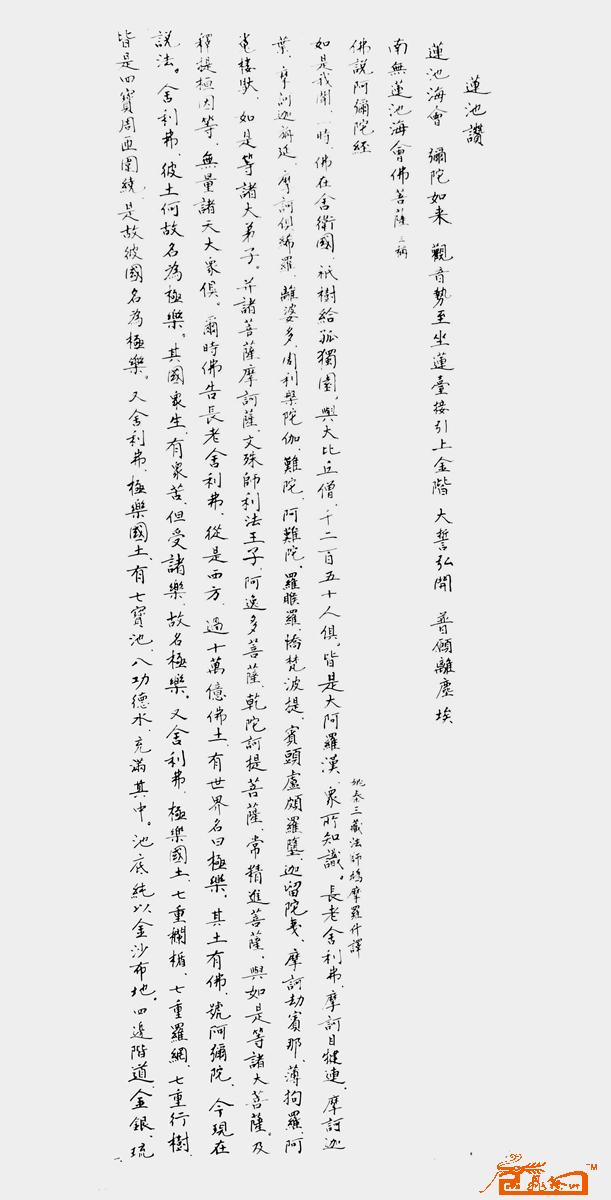 蓮池讚
蓮池海會 彌陀如来 觀音勢至坐蓮臺接引上金階 大誓弘開 普願離塵埃
南無蓮池海會佛菩薩 三稱
佛說阿彌陀経
姚秦三藏法師鳩摩羅什譯
如是我聞、一時、佛在舍衛國、祇樹給孤獨園。與大比丘僧、千二百五十人俱。皆是大阿羅漢、衆所知識。長老舍利弗、摩訶目犍連、摩訶迦
葉、摩訶迦旃延、摩訶俱絺羅、離婆多、周利槃陀伽、難陀、阿難陀、羅睺羅、憍梵波提、賓頭盧頗羅墮、迦留陀夷、摩訶劫賓那、薄拘羅、阿
㝹樓馱、如是等諸大弟子。并諸菩薩摩訶薩、文殊師利法王子、阿逸多菩薩、乾陀訶提菩薩、常精進菩薩、與如是等諸大菩薩。及
釋提桓因等、無量諸天大衆俱。爾時佛告長老舍利弗、從是西方、過十萬億佛土、有世界名曰極樂。其土有佛、號阿彌陀、今現在
説法。舍利弗、彼土何故名為極樂。其國衆生、有衆苦、但受諸樂、故名極樂。又舍利弗、極樂國土、七重欄楯、七重羅網、七重行樹、
皆是四寶周匝圍繞、是故彼國名為極樂。又舍利弗、極樂國土、有七寶池、八功德水、充滿其中。池底純以金沙布地。四邊階道金銀、琉
TM